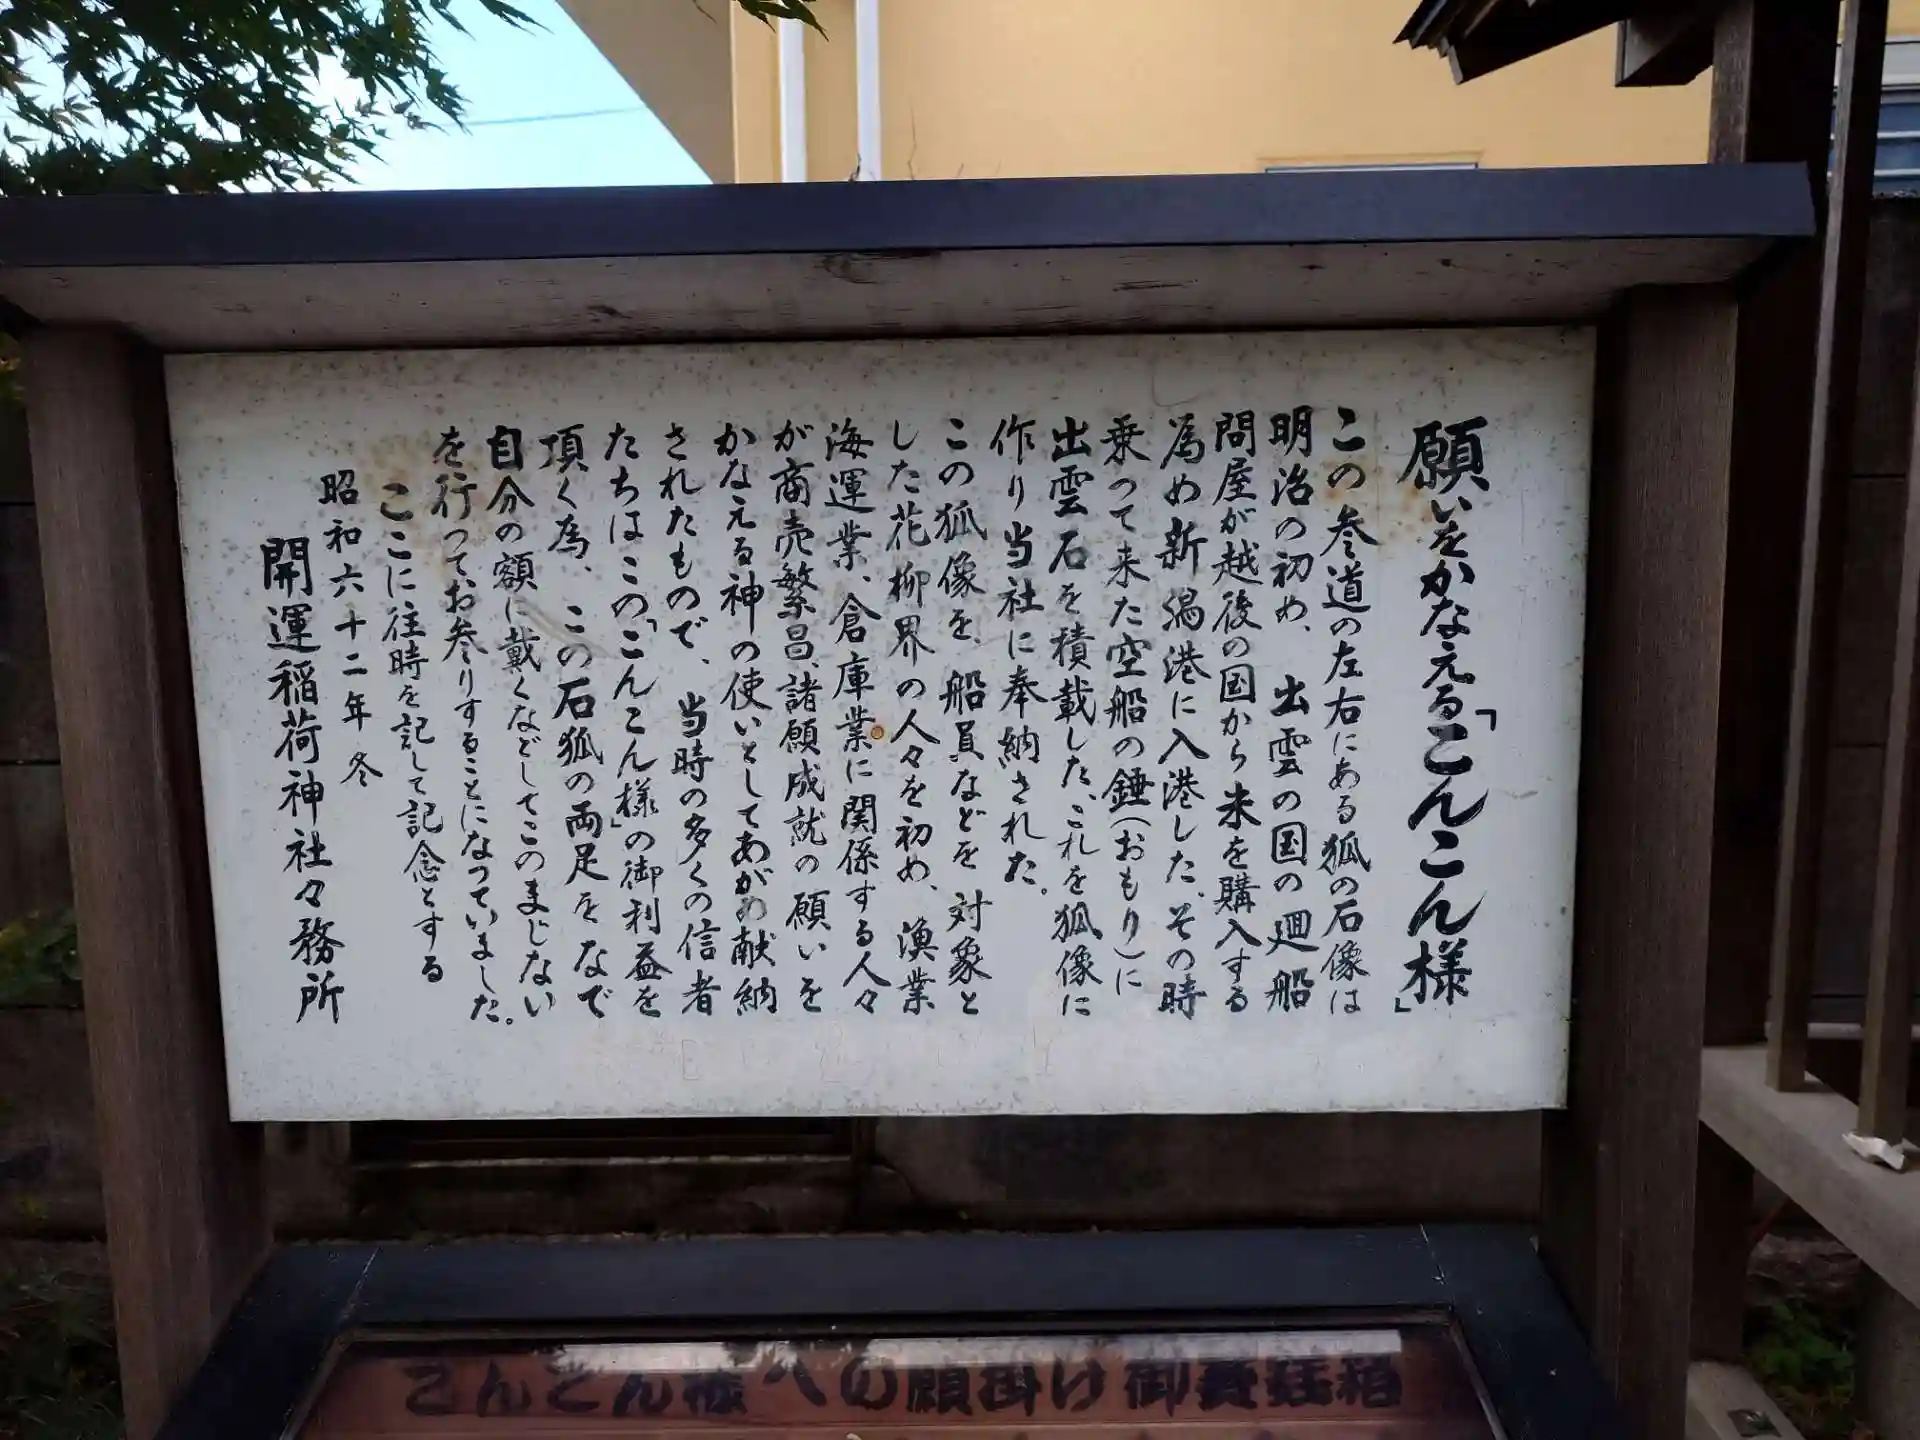 願いをかなえる「こんこん様」
この参道の左右にある狐の石像は
明治の初め、出雲の国の廻船
問屋が越後の国から米を購入する
為め新潟港に入港した。その時
乗って来た空船の錘(おもり)に
出雲石を積載した、これを狐像に
作り当社に奉納された。
この狐像を、船員などを対象と
した花柳界の人々を初め、漁業
海運業、倉庫業に関係する人々
が商売繁昌、諸願成就の願いを
かなえる神の使いとしてあがめ献納
されたもので、当時の多くの信者
たちはこの「こんこん様」の御利益を
頂く為、この石狐の両足をなで
自分の額に戴くなどしてこのまじない
を行ってお参りすることになっていました。
ここに往時を記して記念とする
昭和六十二年 冬
開運稲荷神社々務所
こんこん様への願掛け御賽銭箱